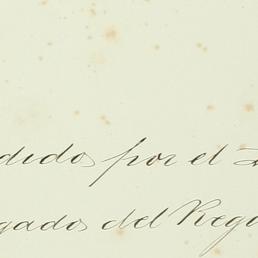 dido por el
gado del Regi